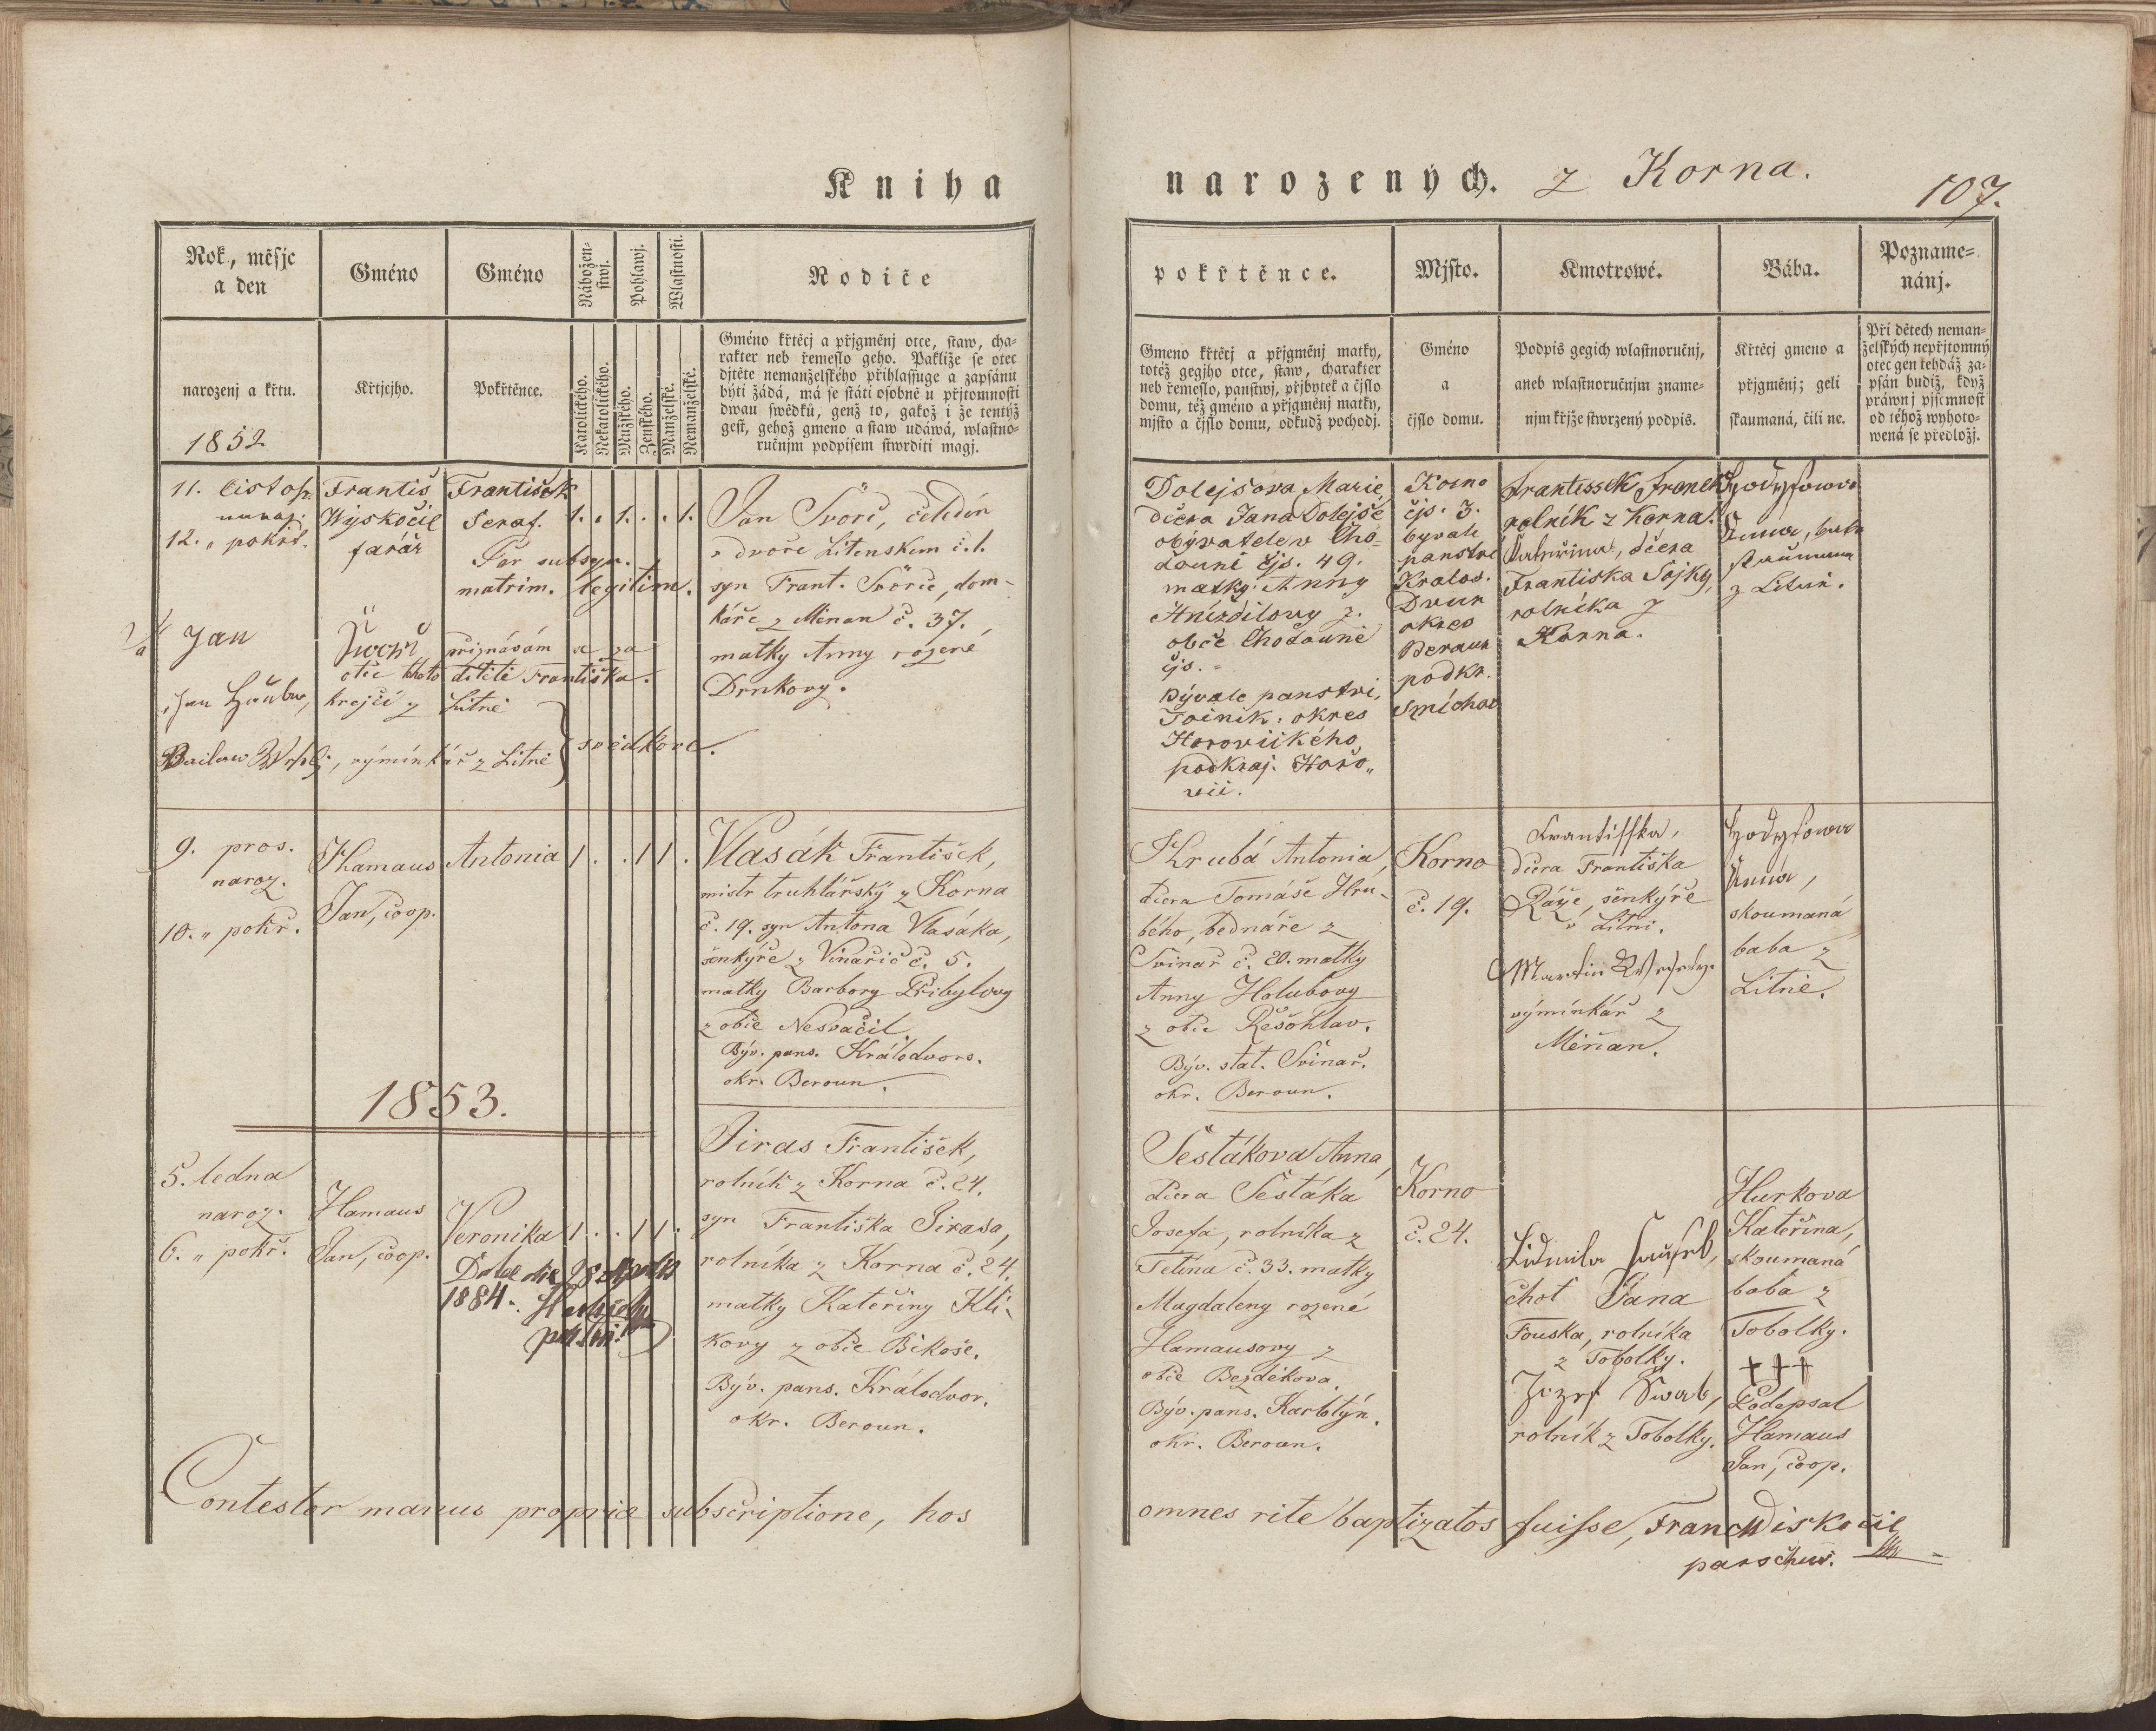 Kniha
narozených. z Korna.
107.
Rok, měsjc
a den
narozenj a křtu.
1852
Gméno
Křtjcjho.
Gméno
Pokřtěnce.
Nábožen-
stwj.
Katolického.
Nekatolického.
Pohlawj.
Mužského.
Ženského.
Wlastnosti.
Manželské.
Nemanželské.
Rodiče
Gméno křtěcj a přjgměnj otce, staw, cha-
rakter neb řemeslo geho. Pakliže se otec
djtěte nemanželského přihlassuge a zapsánu
býti žádá, má se státi osobně u přjtomnosti
dwau swědků, genž to, gakož i že tentýž
gest, gehož gmeno a staw udáwá, wlastno-
ručnjm podpisem stwrditi magj.
pokřtěnce.
Gmeno křtěcj a přjgměnj matky,
totéž gegjho otce, staw, charakter
neb řemeslo, panstwj, přjbytek a čjslo
domu, též gméno a přjgměnj matky,
mjsto a čjslo domu, odkudž pochodj.
Mjsto.
Gméno
a
čjslo domu.
Kmotrowé.
Podpis gegich wlastnoručnj,
aneb wlastnoručnjm zname-
njm křjže stwrzený podpis.
Bába.
Křtěcj gmeno a
přjgměnj; geli
skaumaná, čili ne.
Pozname-
nánj.
Při dětech neman-
želských nepřjtomný
otec gen tehdáž za-
psán budiž, když
práwnj pjsemnost
od téhož wyhoto-
wená se předložj.
11. listop.
naroz.
12. „ pokřt.
Františ
Wyskočil
farář
František
Seraf.
Per subseq.
matrim. legitim.
1. . 1. . . 1.
Jan Svórč, čeledín
v dvoře Litenskem č. 1.
syn Frant. Svórče, dom-
káře z Měnan č. 37.
matky Anny rozené
Drnkovy.
Jan Sworč přiznávám se za
otce tkoto dítěte Františka.
Jan , krejčí z Litně
, výminkář z Litně } svědkové.
Dolejšova Marie,
dcera Jana Dolejše
obývatele v Cho-
douni čjs. 49.
matky: Anny
Hnízdilovy z.
obce Chodouně
čjs. -
Bývale panstvi,
Točnik: okres
Horovického,
podkraj. Hořo„
vic.
Korno
čjs. 3.
byvale
panstvi
Kralov.
Dvur
okres
Beraun
podkr.
Smíchov
Frantissek Fronek
rolník z Korna.
Kateřina, dčera
Frantiska Sojky,
rolníka z
Korna.
Anna, baba
z Liteň.
9. pros.
naroz.
10. „ pokř.
Hamaus
Jan, coop.
Antonia
1 . . 1 1 .
Vlasák František,
mistr truhlářský z Korna
č. 19. syn Antona Vlasáka,
šenkýře z Vinařic č. 5.
matky Barbory Přibylovy
z obce Nesvačil.
Býv. pans. Králodvors.
okr. Beroun.
Hrubá Antonia,
dcera Tomáše Hru-
bého, bednáře z
Svinař č. 20. matky
Anny Holubovy
z obce Řešohlav.
Býv. stat. Svinař.
okr. Beroun.
Korno
č. 19.
Frantisska,
dčera Františka
Ráže, šenkýře
v Litni.
Martin
výminkář z
Měňan.
Anna,
skoumaná
baba z
Litně.
1853.
5. ledna
naroz.
6. „ pokř.
Hamaus
Jan, coop.
Veronika
1 . . 1 1 .
1884.
Jiras František,
rolník z Korna č. 24.
syn Františka Jirasa,
rolníka z Korna č. 24.
matky Kateřiny Kli-
kovy z obce Bikoše.
Býv. pans. Králodvor.
okr. Beroun.
Šestákova Anna,
dcera Šestáka
Josefa, rolníka z
Tetína č. 33. matky
Magdaleny rozené
Hamausovy z
obce Bezděkova.
Býv. pans. Karlštýn.
okr. Beroun.
Korno
č. 24.
Lidmila
choť Jana
Fouska, rolníka
z Tobolky.
Jozef Šwab,
rolník z Tobolky.
Hurkova
Kateřina,
skoumaná
baba z
Tobolky.
+++
Podepsal
Hamaus
Jan, coop.
Contestor manus propriæ subscriptione, hos
omnes rite baptizatos fuisse, Franc Wiskočil
parochus.